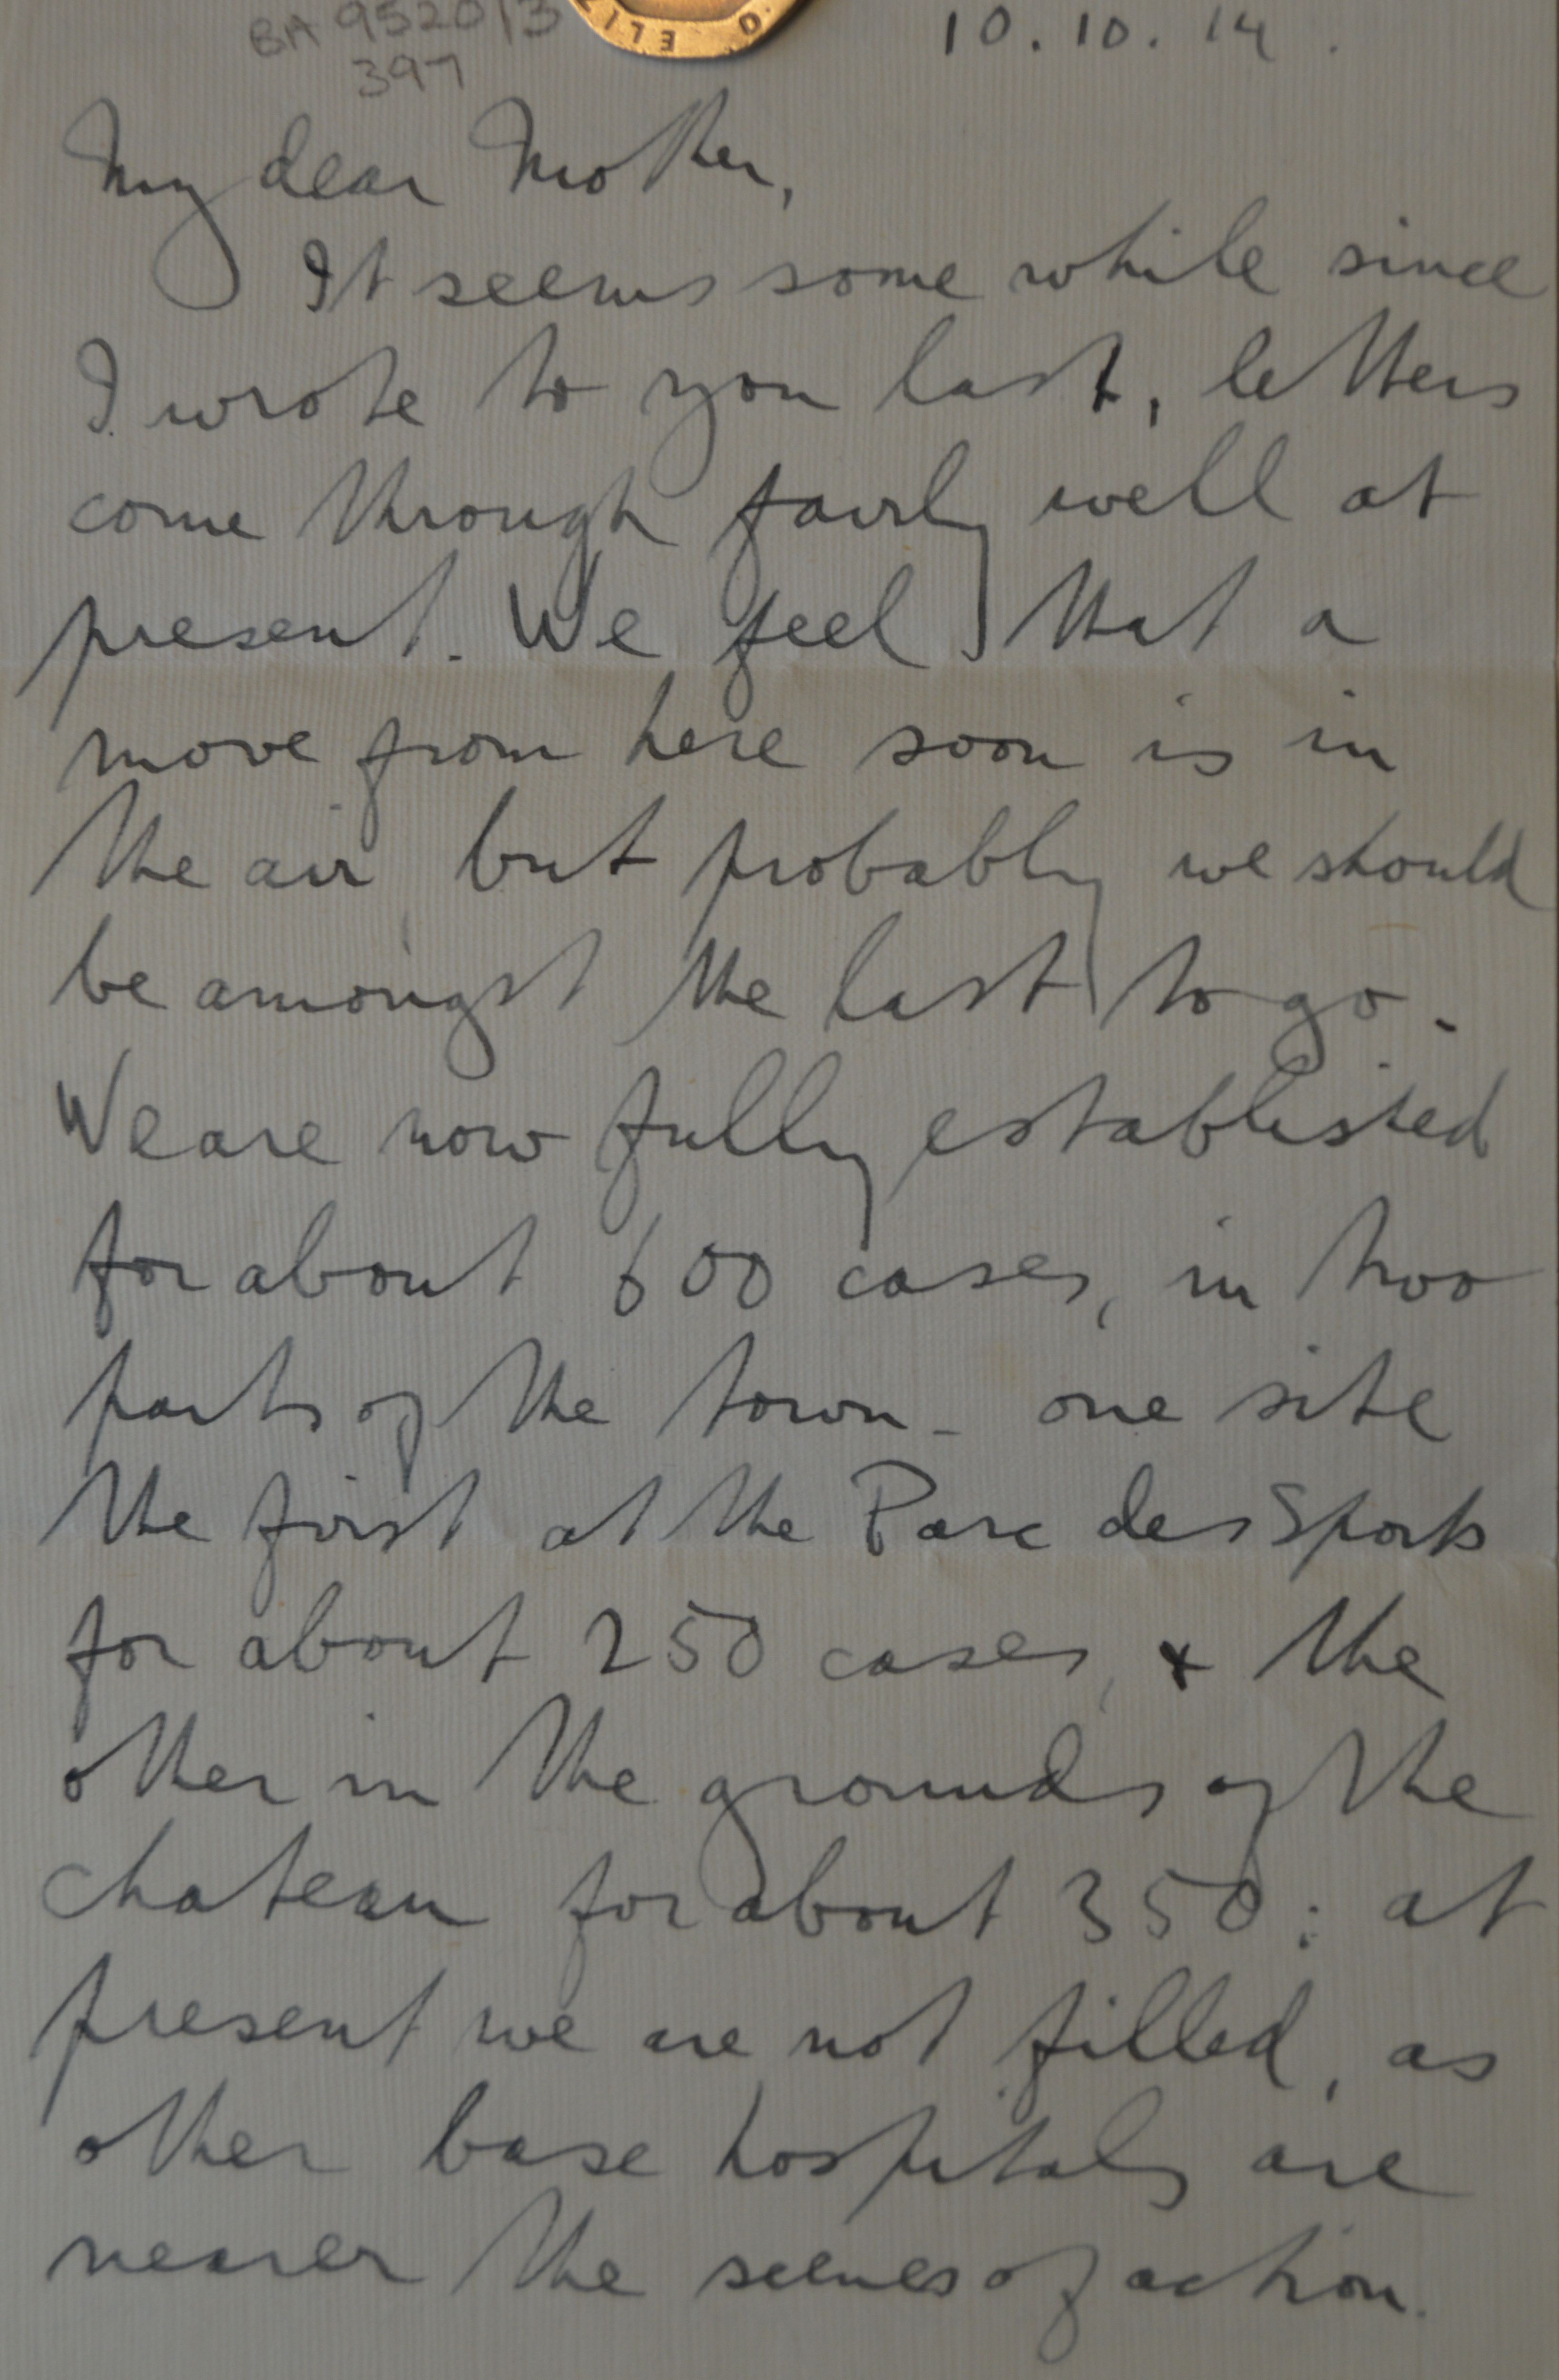 BA 9520/3
397
D ELIZ
10.10.14.
My dear Mother,
It seems some while since
I wrote to you last, letters
come through fairly well at
present. We feel that a
move from here soon is in
the air, but probably we should
be amongst the last to go.
We are now fully established
for about 600 cases, in two
parts of the town - one site
the first at the Parc des Sports
for about 250 cases, & the
other in the grounds of the
chateau for about 350: at
present we are not filled, as
other base hospitals are
nearer the scenes of action.